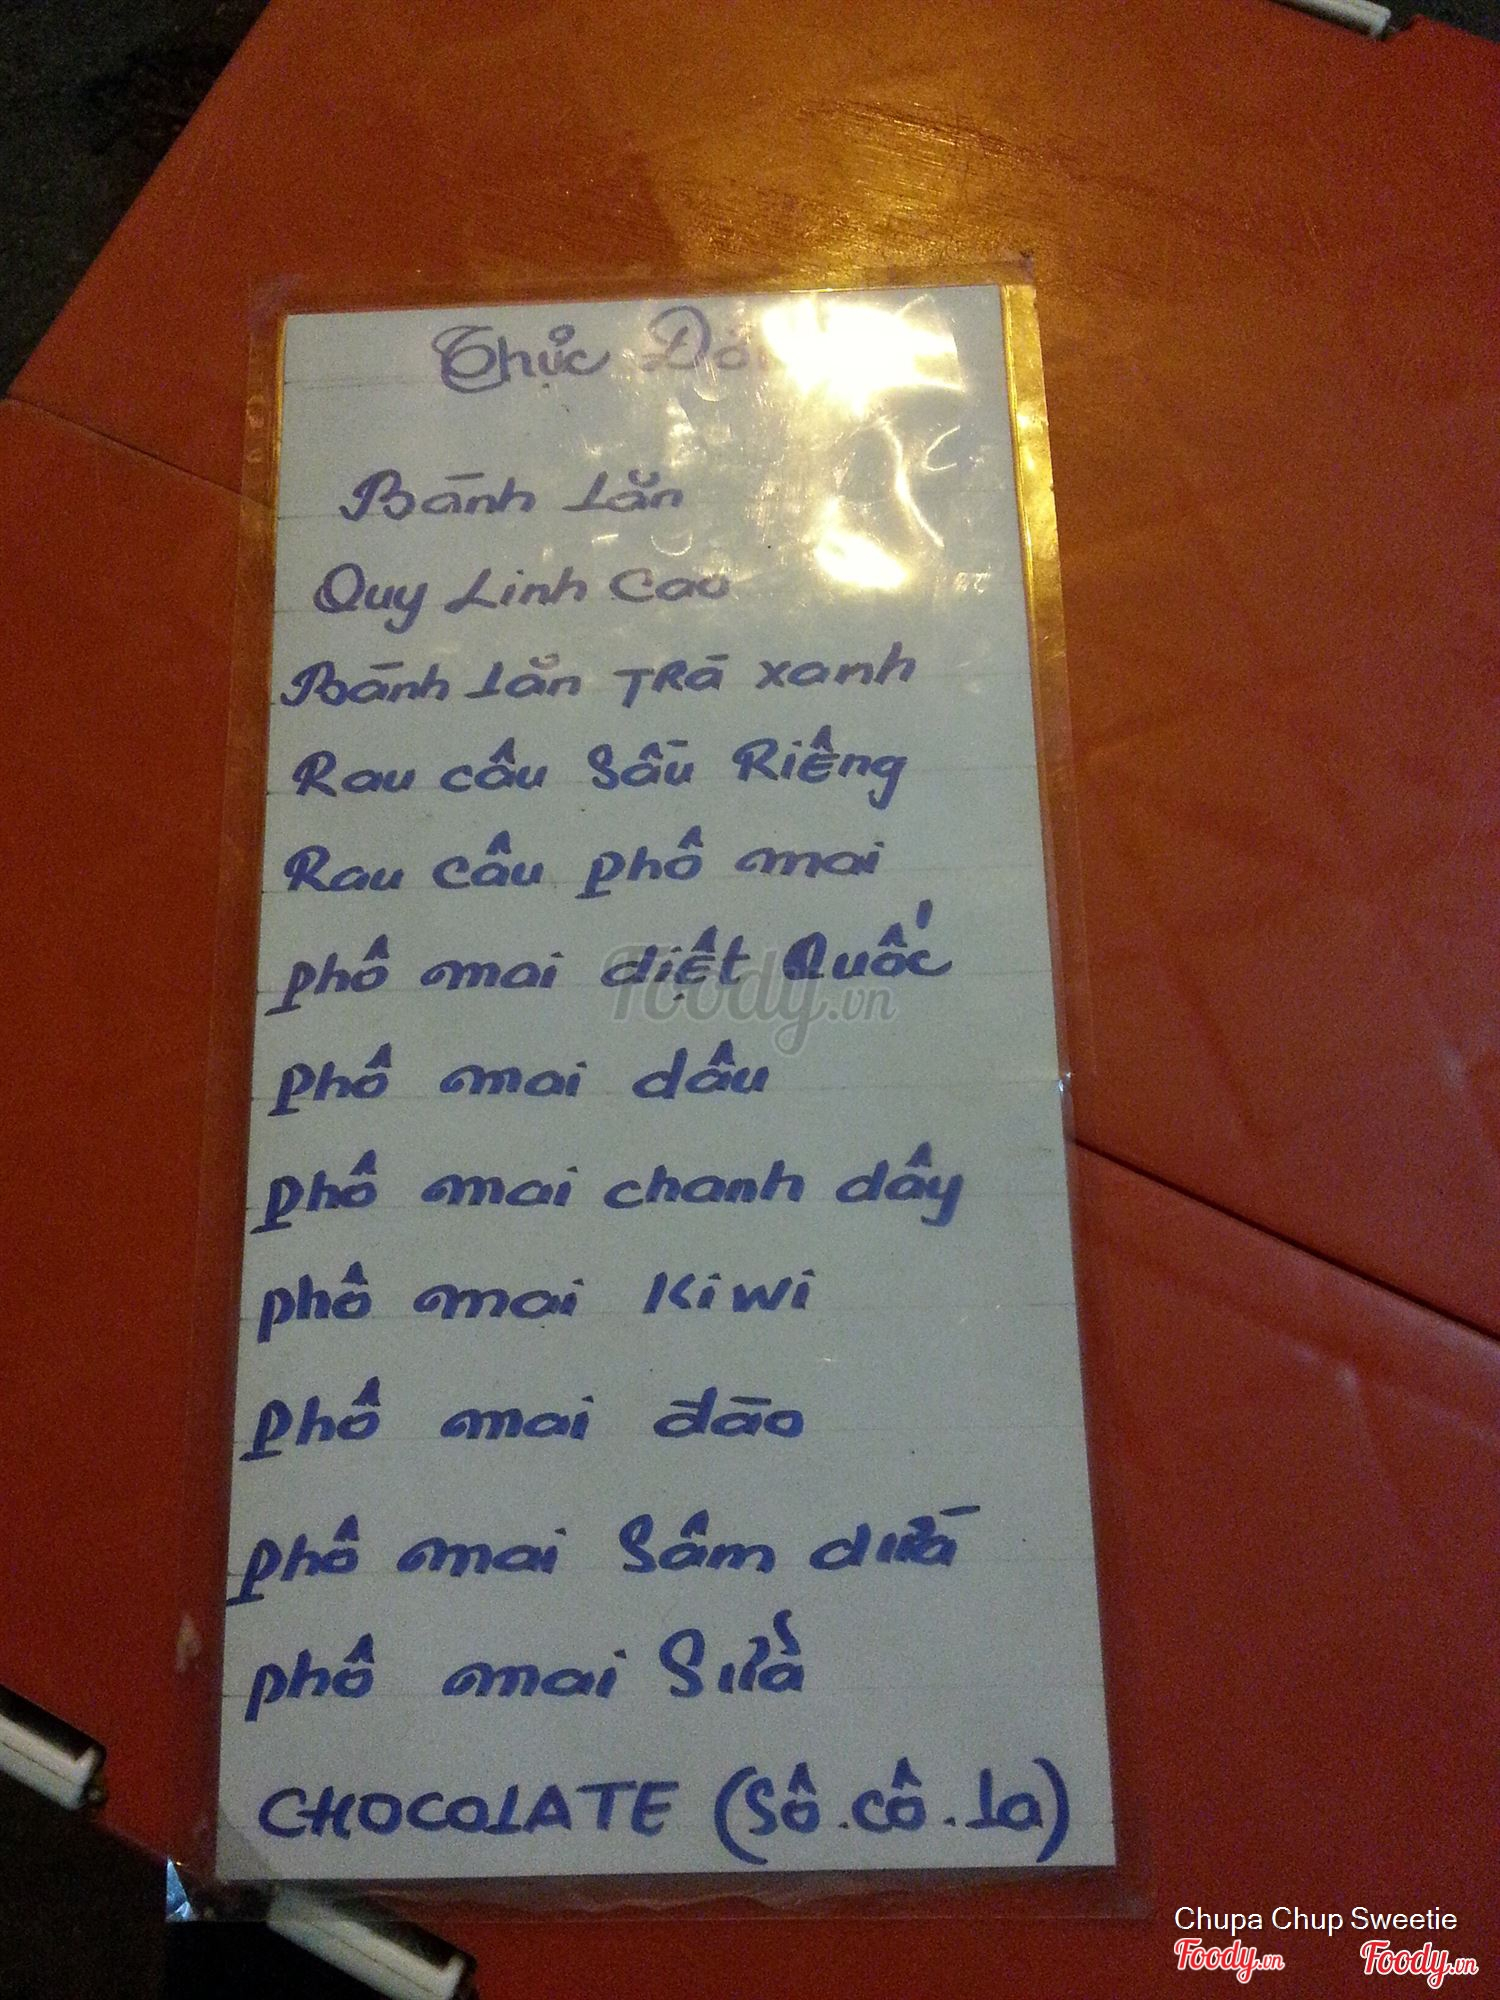 Thực Đơn
Bánh Lăn
Quy Linh Cao
Bánh Lăn Trà Xanh
Rau câu Sầu Riêng
Rau câu phô mai
phô mai diệt Quốc
phô mai dâu
phô mai chanh dây
phô mai Kiwi
phô mai đào
phô mai Sâm dứa
phô mai Sữa
CHOCOLATE (Sô.cô.la)
Foody.vn
Chupa Chup Sweetie
Foody.vn Foody.vn